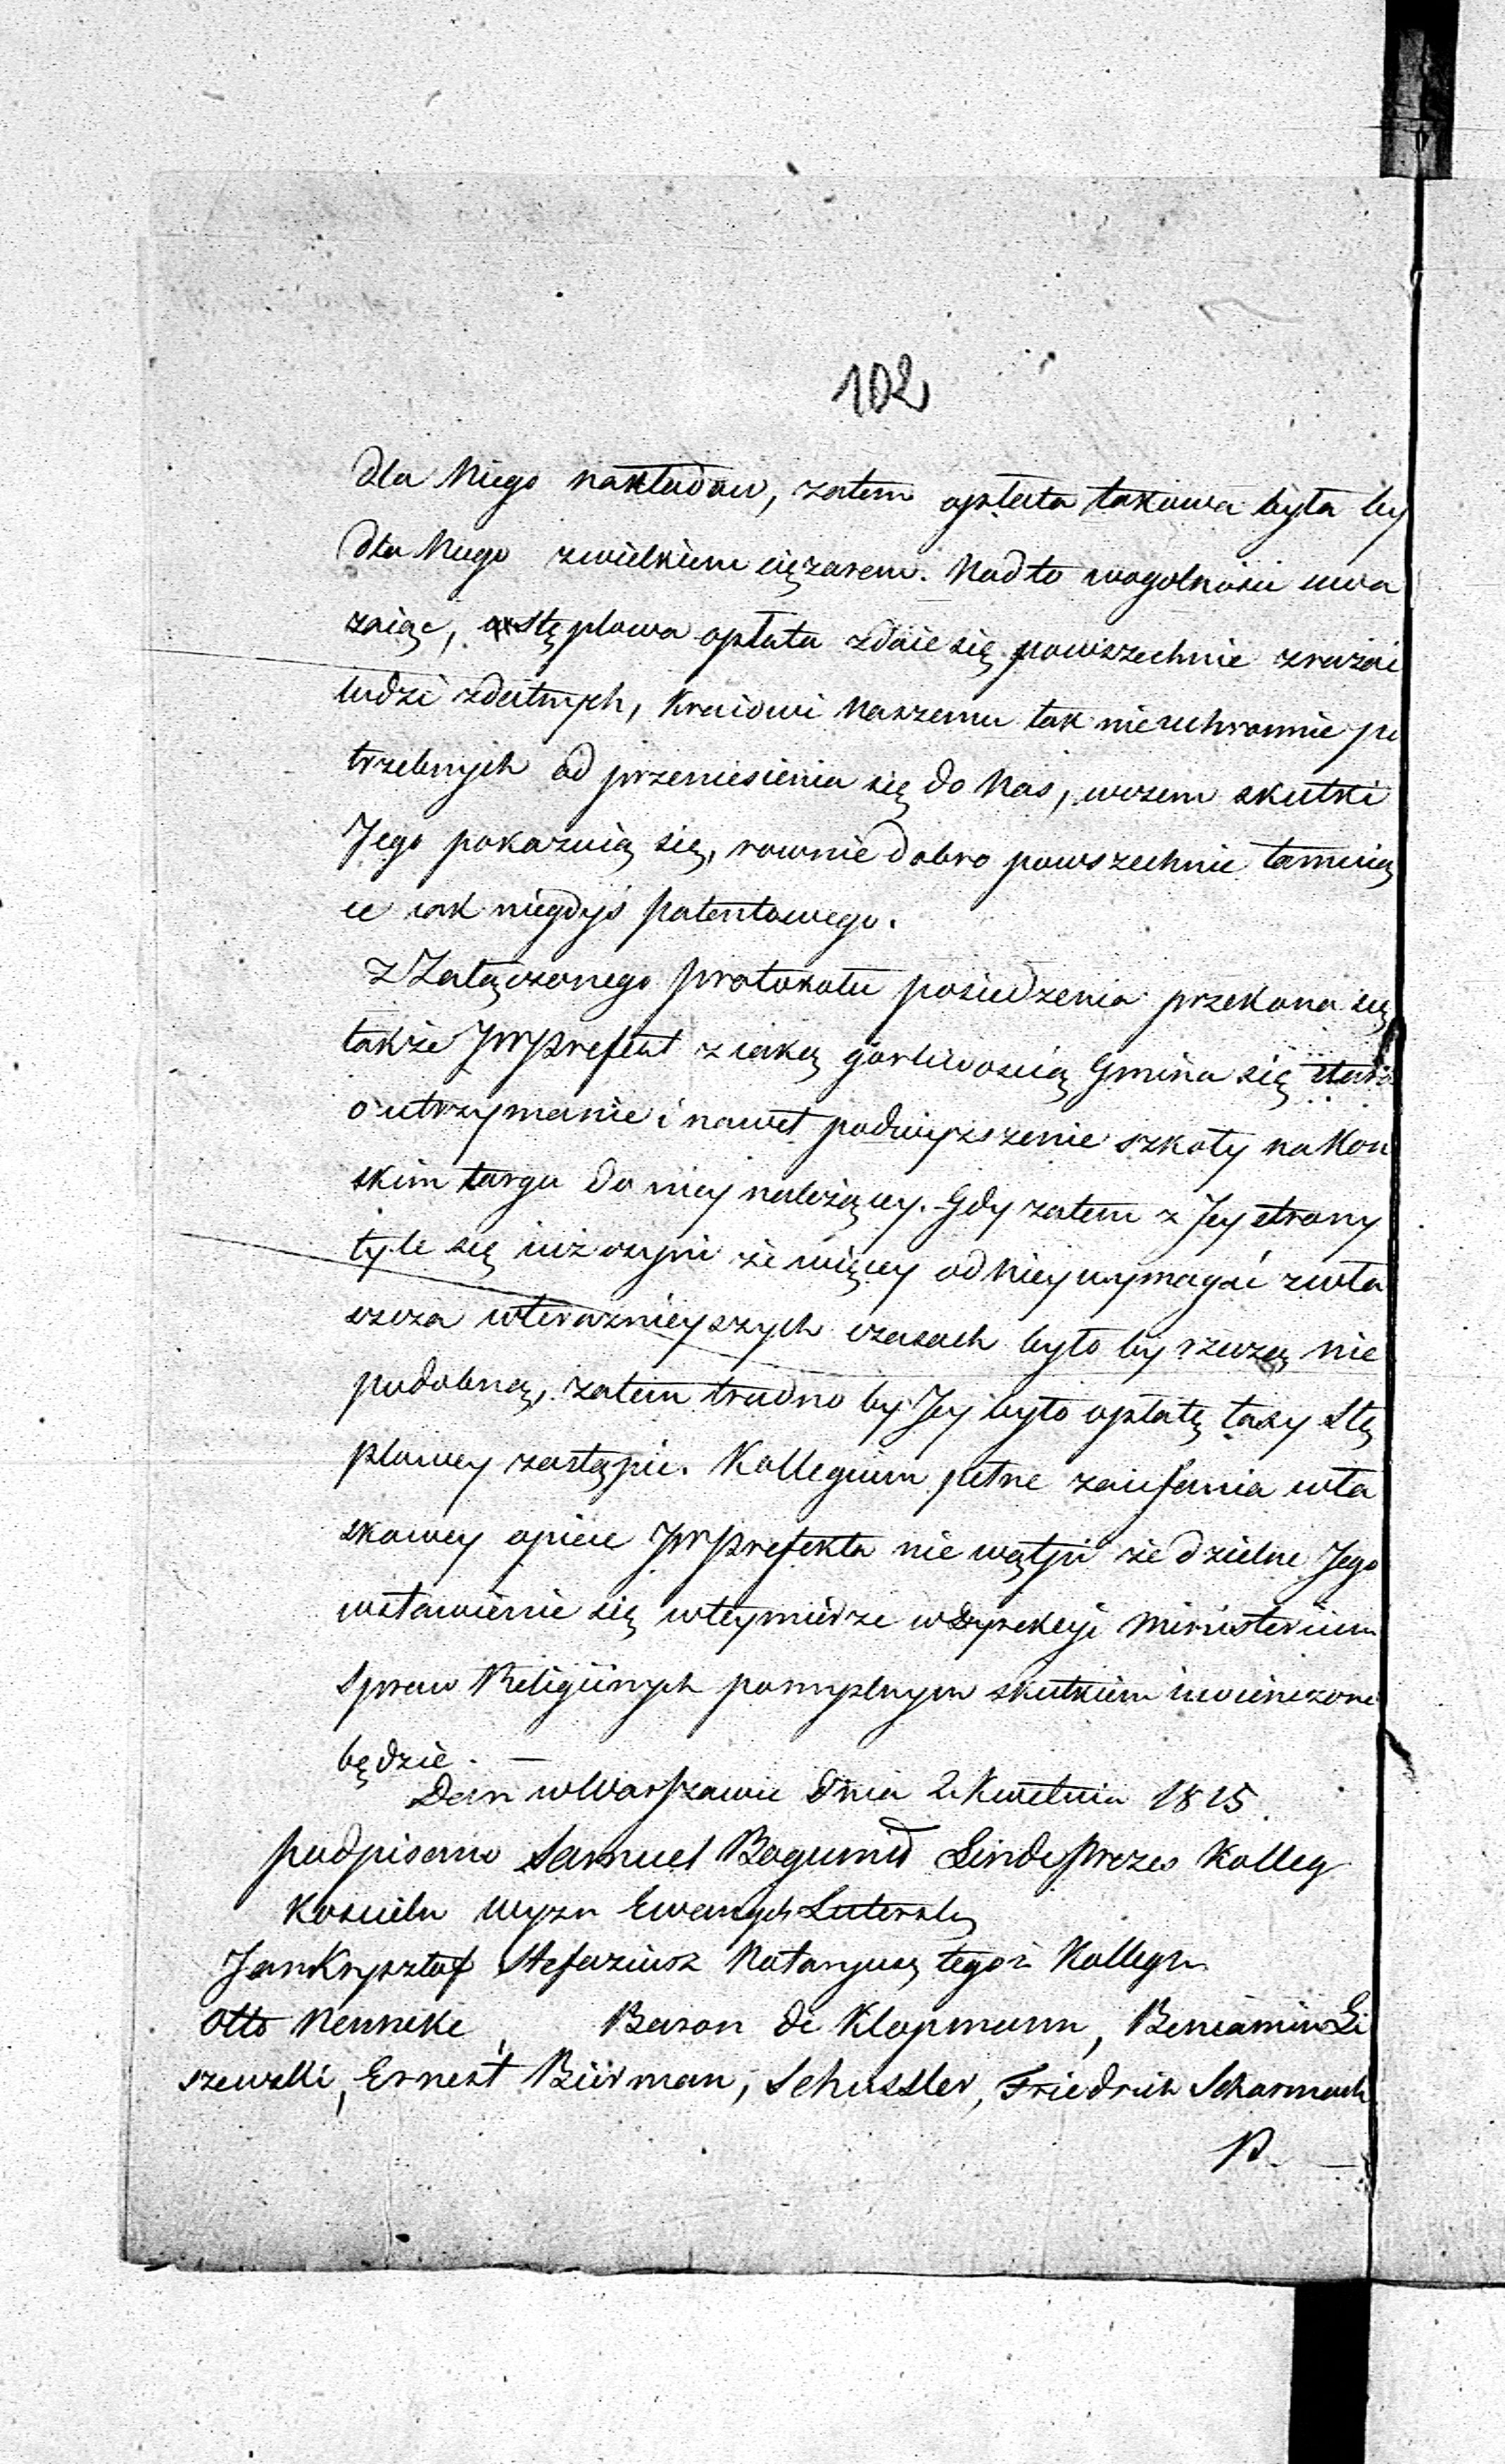 102
dla Niego nakładow, zatem opłata takowa była by
dla Niego zwielkiem ciężarem. Nadto wogolności uwa
zaiąc, stęplowa opłata zdaie się powszechnie zrażać
ludzi zdatnych, Kraiowi Naszemu tak nieuchronnie po
trzebnych od przeniesienia się do Nas, wczem skutki
Jego pokazuią się, rownie dobro powszechnie tamuią
ce iak niegdyś patentowego.
Z Załączonego protokołu posiedzenia przekona się
także JWPrefekt z iaką gorliwością Gmina się stara
o utrzymanie i nawet podwyższenie szkoły na Kon
skim targu do niey należącey. Gdy zatem z Jey strony
tyle się iuż czyni że więcey od Niey wymagać zwła
szcza wteraznieyszych czasach było by rzeczą nie
podobną, zatem trudno by Jey było opłatę taxy Stę
plowey zastąpić. Kollegium pełne zaufania wła
skawey opiece JWPrefekta nie wątpi że dzielne Jego
wstawienie się wteymierze w Dyrekcyi Ministerium
Spraw Religiinych pomyslnym skutkiem uwienczone
będzie. —
Dan w Warszawie dnia 2 Kwietnia 1815.
podpisano Samuel Bogumił Linde Prezes Kolleg
Kościeln Wyzn Ewangeli Luterski
Jan Krysztof Notaryusz tegoż Kollegu
Otto Nenneke, Baron de Klopmann, Beniamin Li
szewski, Ernest Bürman, Schussler, Friedrich Scharmach